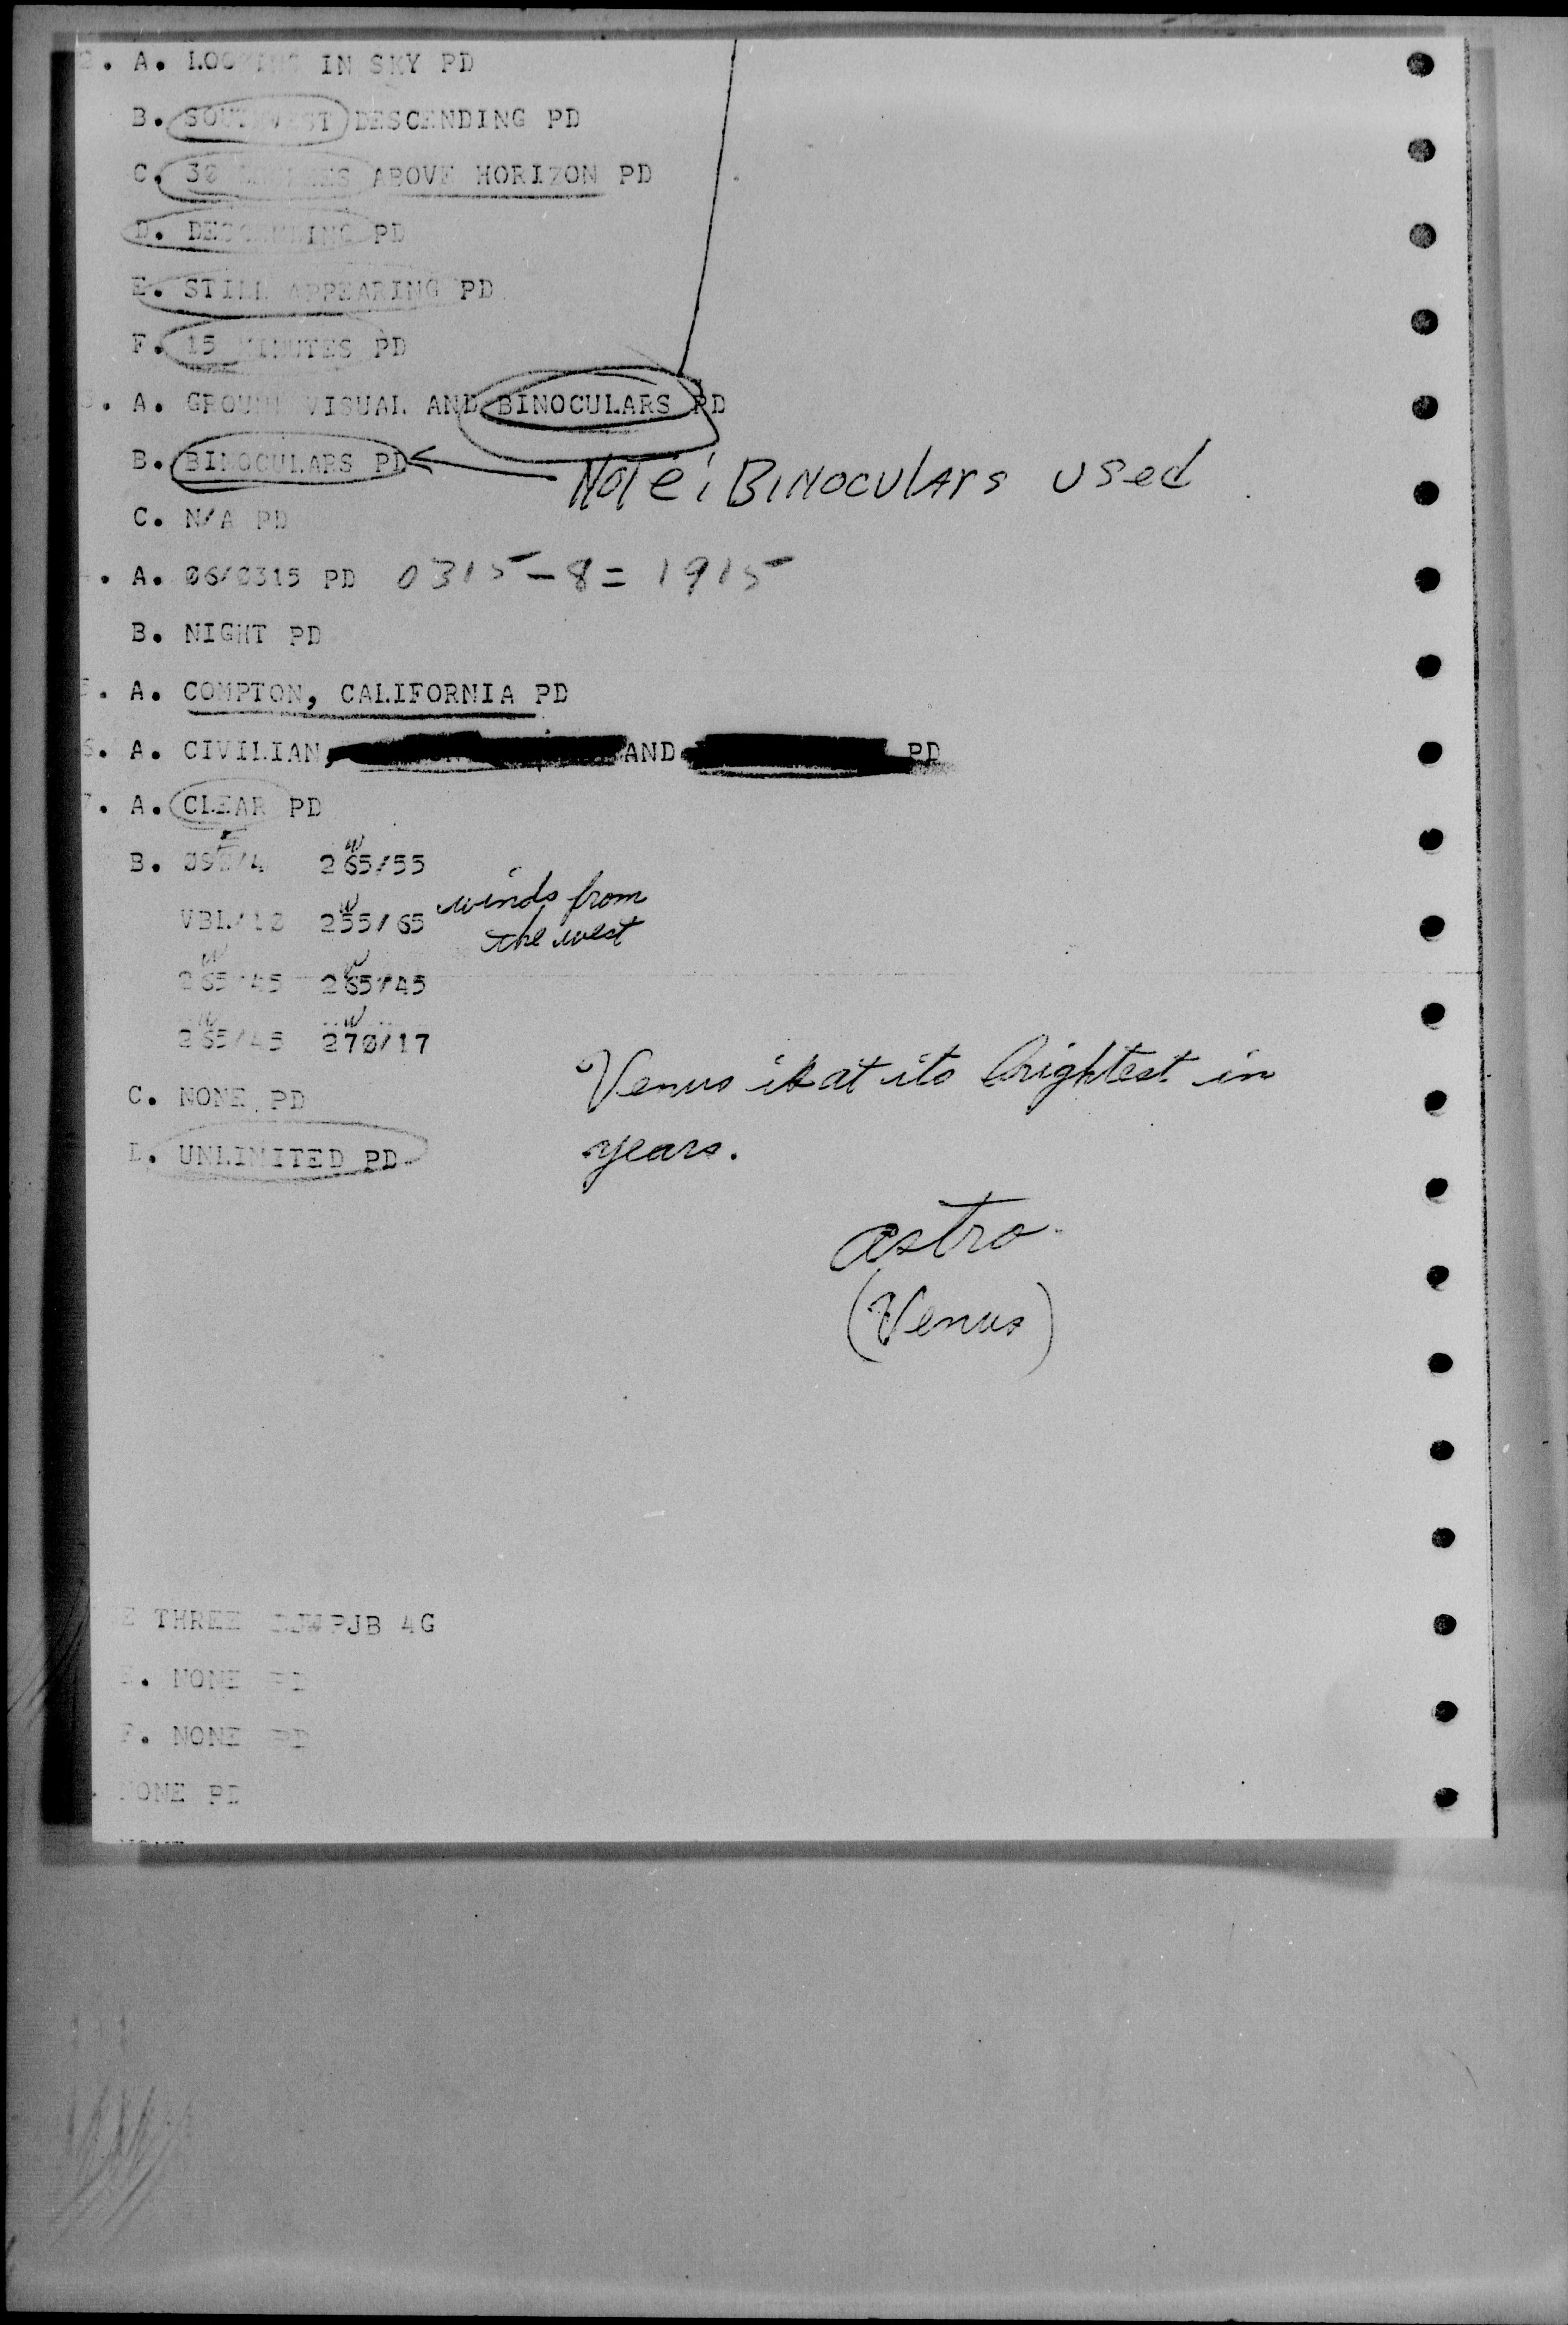 2. A. LOOKING IN SKY PD
B. SOUTHWEST DESCENDING PD
C. 30 DEGREES ABOVE HORIZON PD
D. DESCENDING PD
E. STILL APPEARING PD
F. 15 MINUTES PD
. A. GROUND VISUAL AND BINOCULARS PD
B. BINOCULARS PD
Note: BINOCULARS used
C. N/A PD
. A. 06/0315 PD 0315-8= 1915
B. NIGHT PD
. A. COMPTON, CALIFORNIA PD
6. A. CIVILIAN, AND PD
7. A. CLEAR PD
E W
B. 090/4 265/55
W
VBL/10 255/65 winds from the west
W W
265/45 265/45
W W
265/45 270/17
C. NONE PD
Venus is at its brightest in
years.
D. UNLIMITED PD
astro
(Venus)
E THREE PJB 4G
E. NONE PD
F. NONE PD
. NONE PD